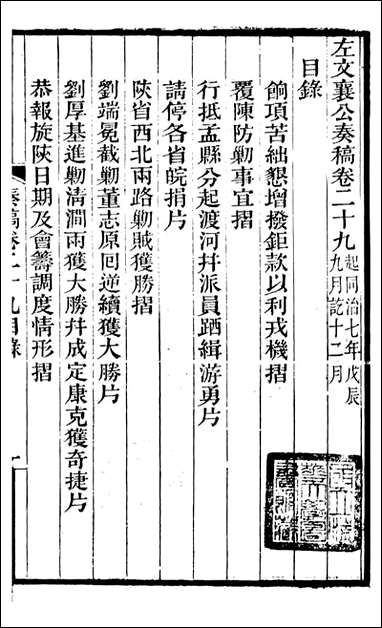 左文襄公奏稿卷二十九起同治七年戊辰九月訖十二月
目錄
餉項苦絀懇增撥鉅款以利戎機摺
覆陳防勦事宜摺
行抵孟縣分起渡河幷派員跴緝游勇片
請停各省皖捐片
陝省西北兩路勦賊獲勝摺
劉端冕截勦董志原囘逆續獲大勝片
劉厚基進勦清澗兩獲大勝幷成定康克獲奇捷片
恭報旋陝日期及會籌調度情形摺
奏稿卷二十九目錄
一